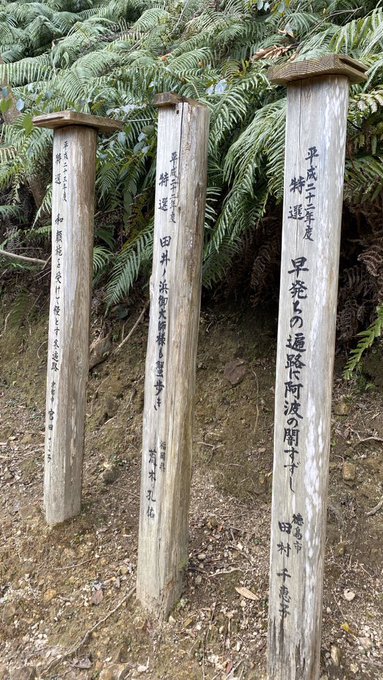 平成二十二年度
特選
早発ちの遍路に阿波の闇すずし
徳島市
田村 千恵子
平成二十二年度
特選
田井ノ浜御大師様も蟹歩き
福岡県
荒木 孔佑
平成二十三年度
特選
和顔施を受けて糧とす冬遍路
宮田